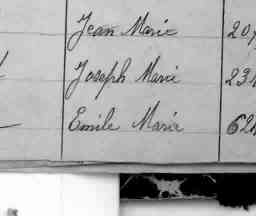 Jean Marie 20
Joseph Marie 23
Emile Marie 62